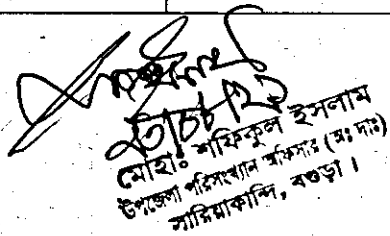 মোহাঃ শফিকুল ইসলাম
উপজেলা পরিসংখ্যান অফিসার (অঃ দাঃ)
সারিয়াকান্দি, বগুড়া।